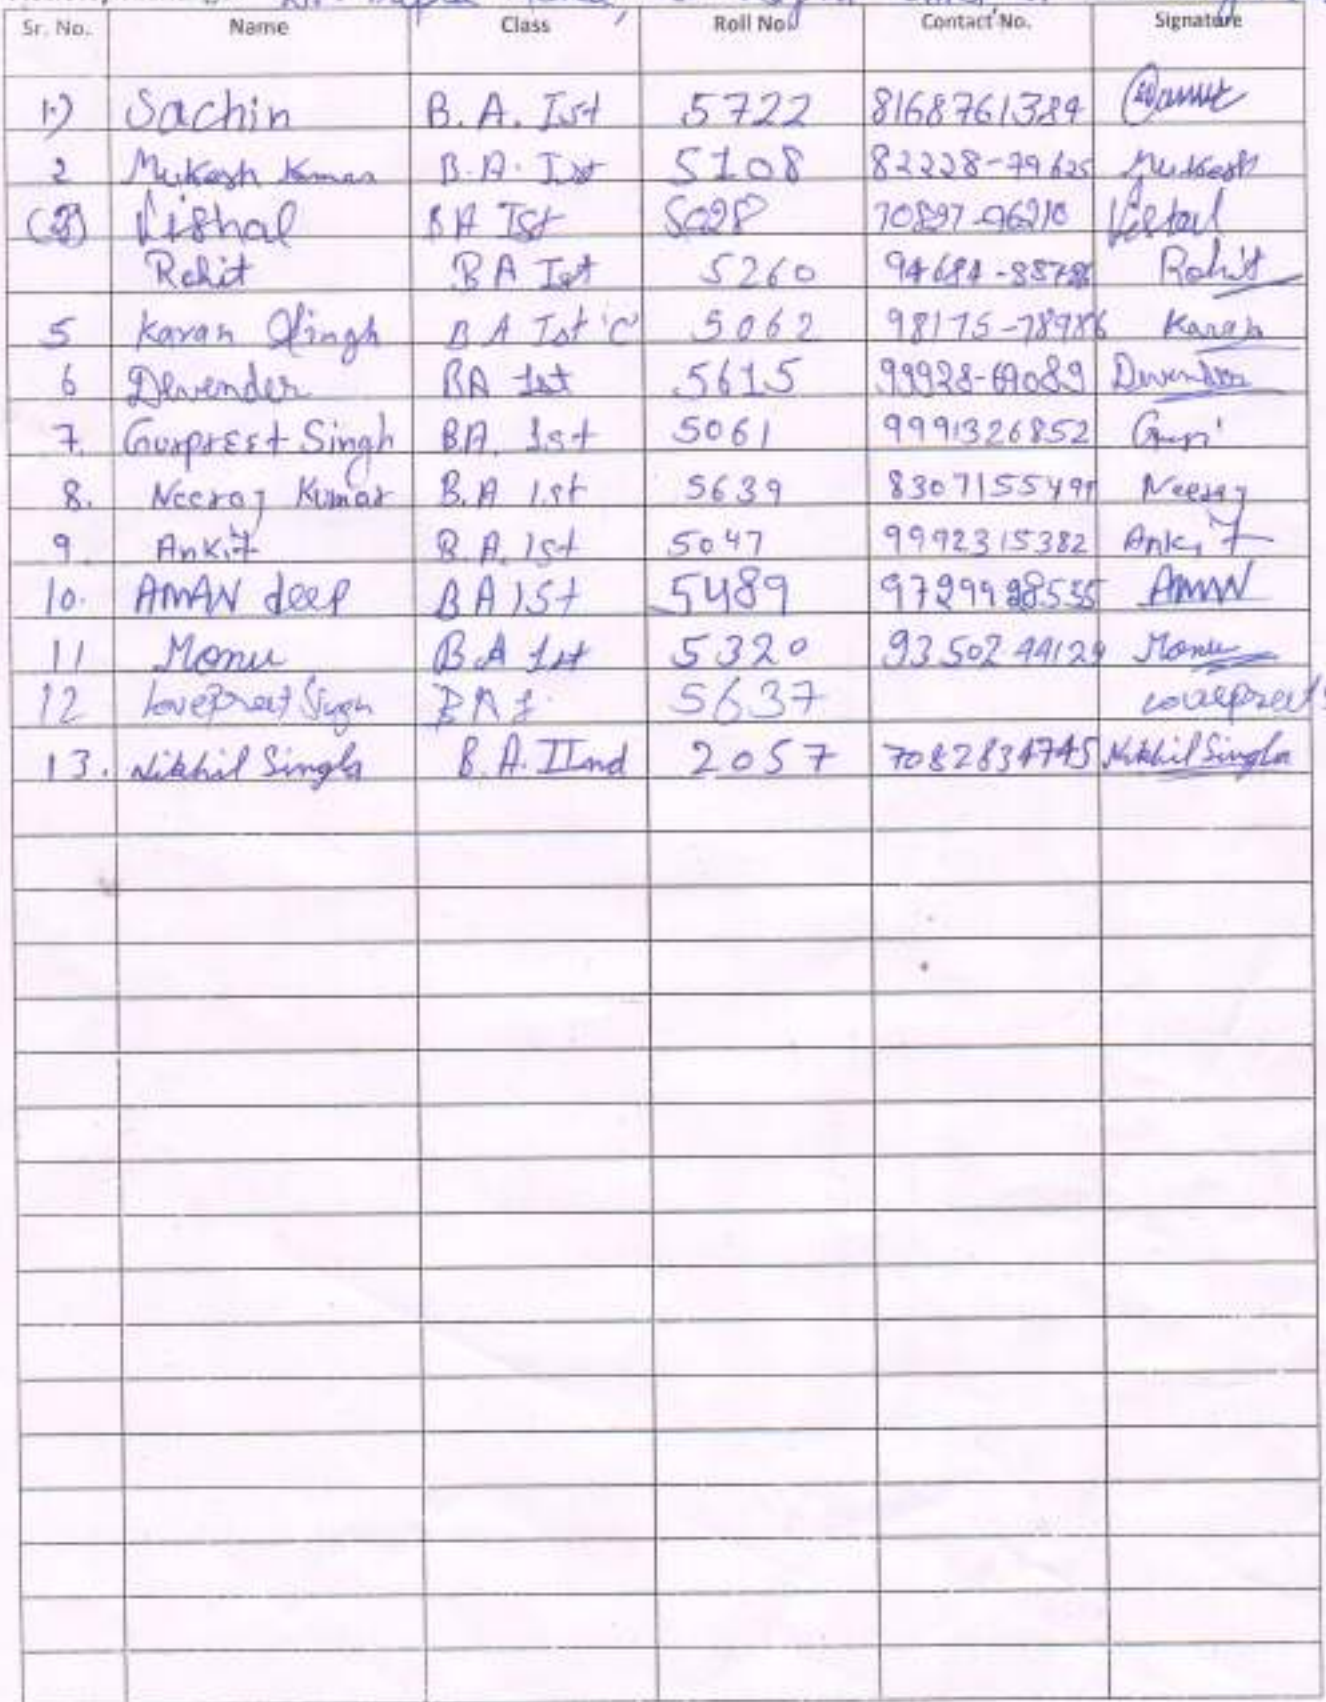 Sr. No. Name Class Roll No. Contact No. Signature
1.) Sachin B.A. Ist 5722 8168761384
2 Mukesh Kumar B.A. Ist 5108 82228-79625 Mukesh
(3) Vishal BA Ist 5028 70897-96210 Vishal
Rohit BA Ist 5260 94684-88786 Rohit
5 Karan Singh BA Ist 'C' 5062 98175-78986 Karan
6 Devender BA 1st 5615 99928-69089 Devender
7. GurprEEt Singh BA. 1st 5061 9991326852 Gupi
8. Neeraj Kumar B.A 1st 5639 830715549 Neeraj
9. Ankit B.A. 1st 5047 9992315382 Ankit
10. AMAN deep BA 1st 5489 9729998555 AMAN
11 Monu B.A 1st 5320 9350244129 Monu
12 lovepreet Singh BA 1. 5637 lovepreet
13. Nikhil Singla B.A. IInd 2057 7082834745 Nikhil Singla